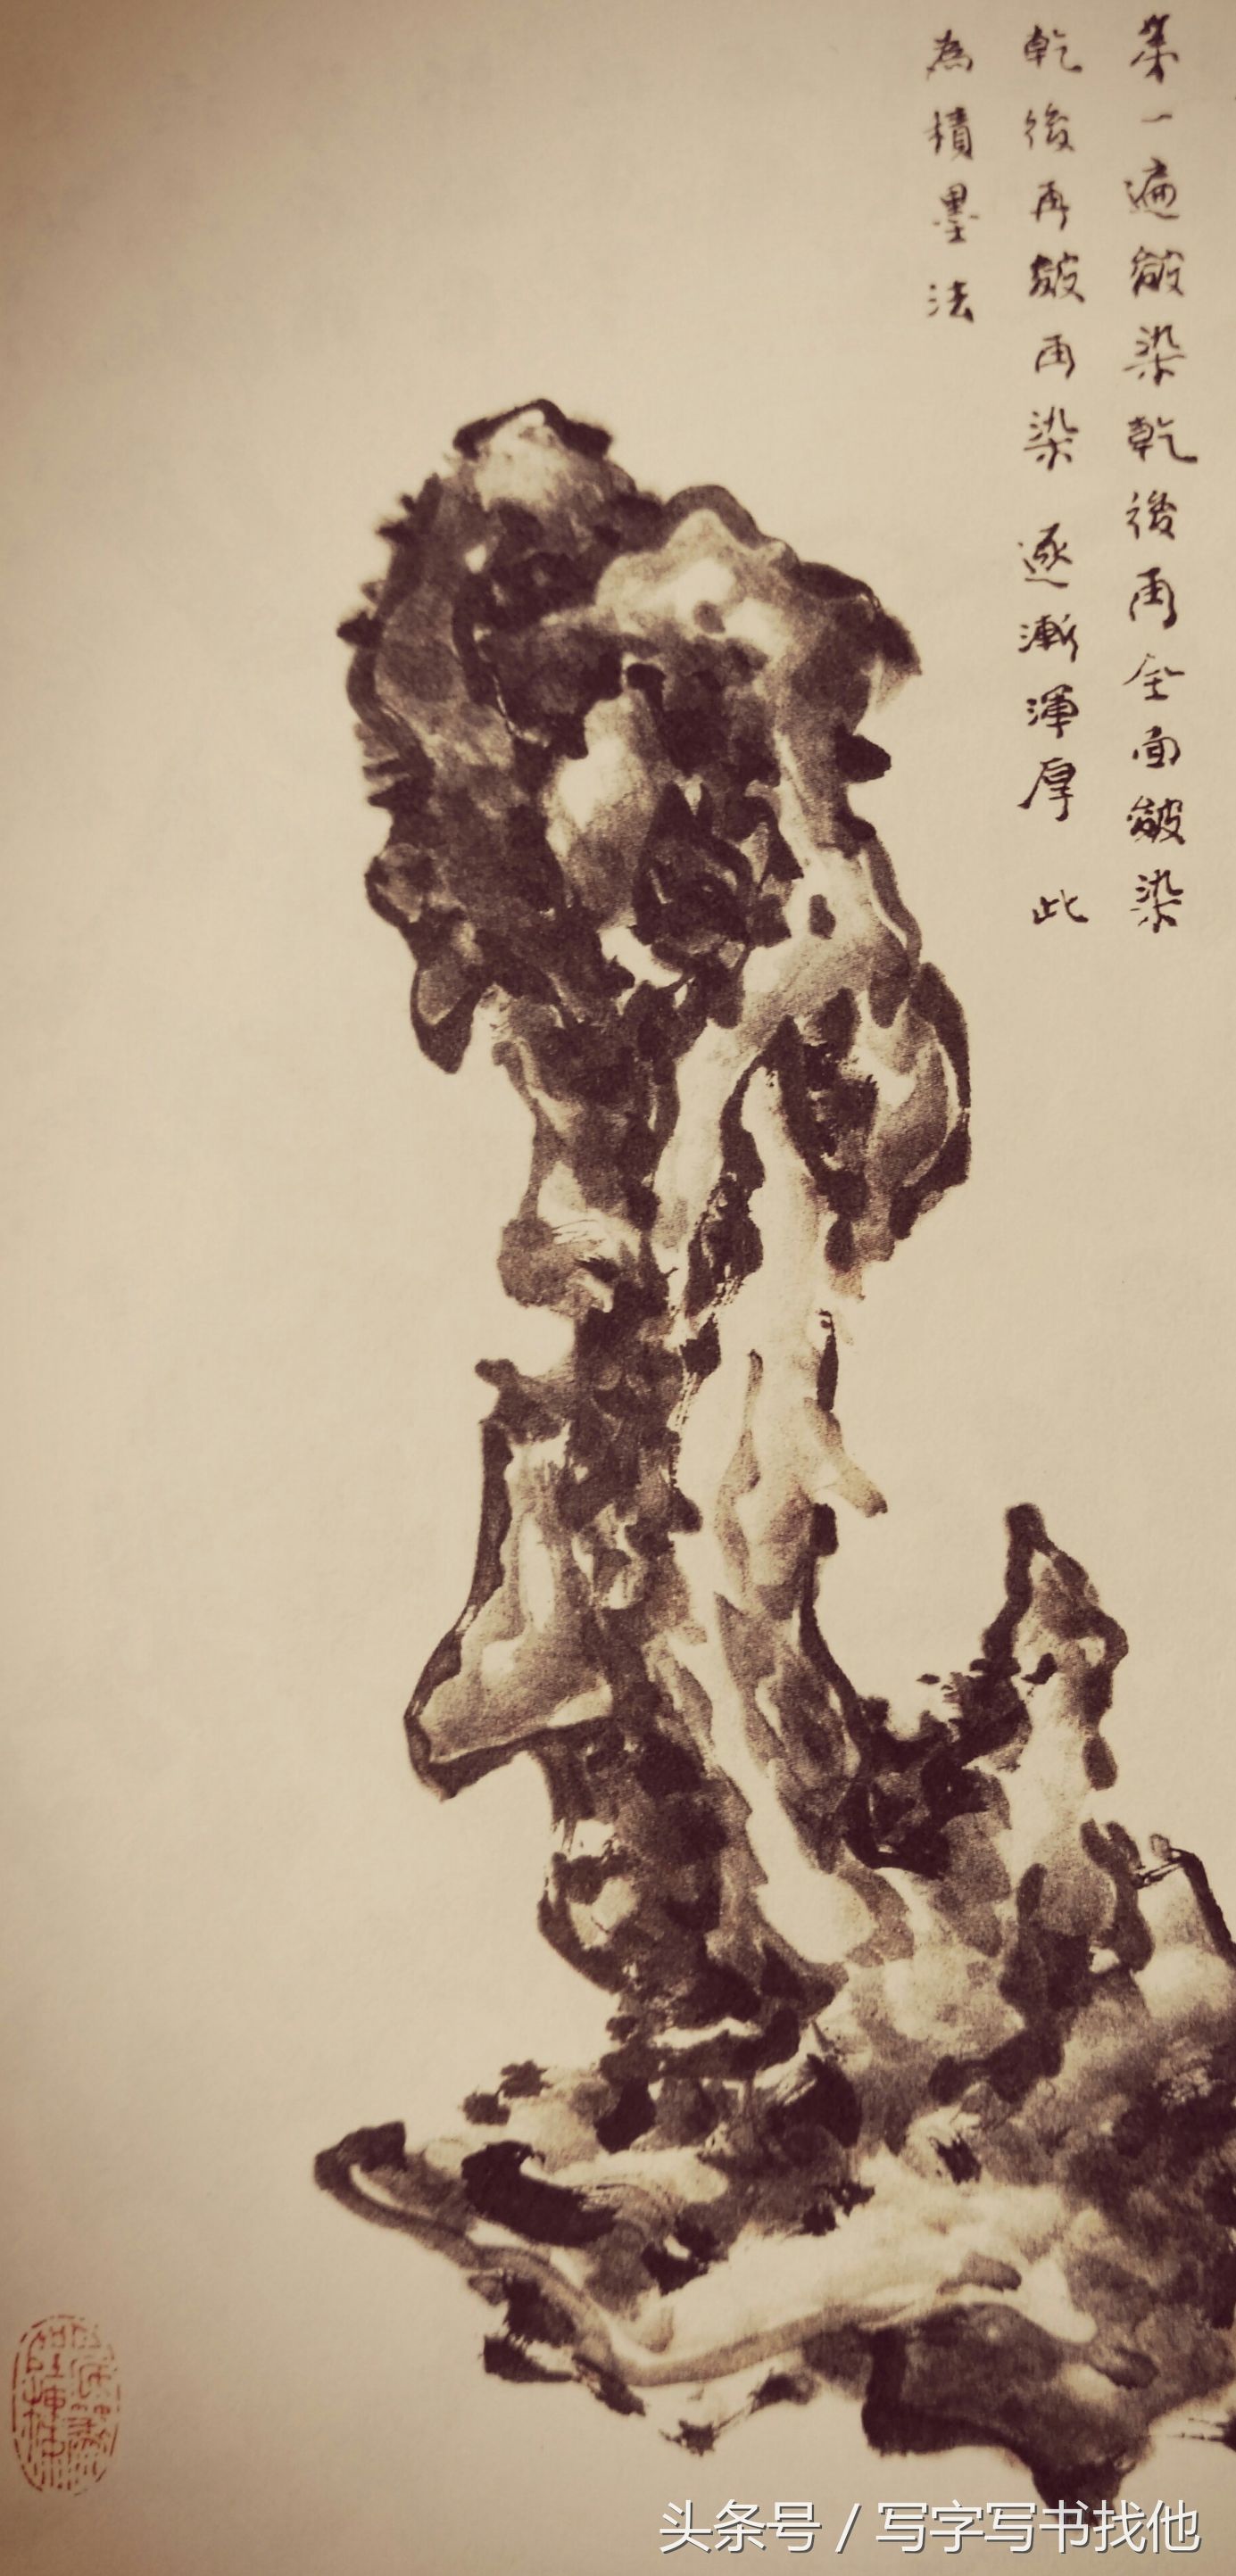 第一遍皴染乾後再全面皴染
乾後再皴再染逐漸渾厚此
為積墨法
头条号 / 写字写书找他